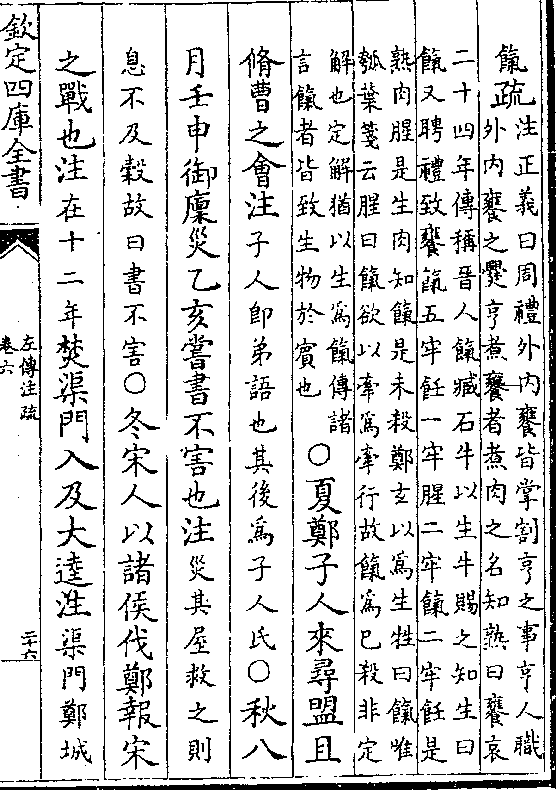 餼疏注正義曰周禮外內饔皆掌割亨之事亨人職
外內饔之爨亨煮饔者煮肉之名知熟曰饔哀
二十四年傳稱晉人餼臧石牛以生牛賜之知生曰
餼又聘禮致饔餼五牢飪一牢腥二牢餼二牢飪是
熟肉腥是生肉知餼是未殺鄭玄以為生牲曰餼唯
瓠葉箋云腥曰餼欲以牽為牽行故餼為已殺非定
解也定解猶以生為餼傳諸
言餼者皆致生物於賓也
○夏鄭子人來尋盟且
脩曹之會注子人即弟語也其後為子人氏○秋八
月壬申御廩災乙亥嘗書不害也注災其屋救之則
息不及穀故曰書不害○冬宋人以諸侯伐鄭報宋
之戰也注在十二年焚渠門入及大逵注渠門鄭城
欽定四庫全書
左傳注疏
卷六
二十六